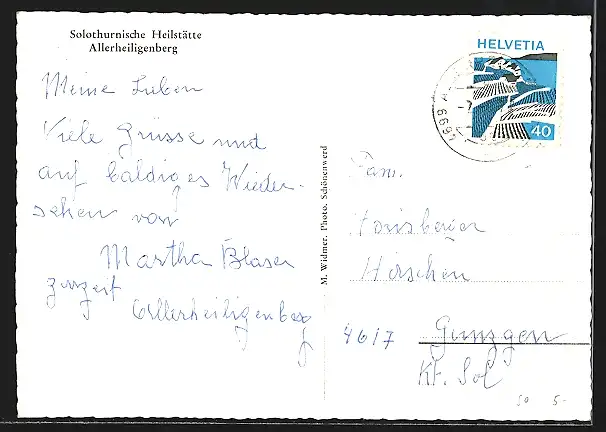 Solothurnische Heilstätte
Allerheiligenberg
Meine Lieben
Viele Grüsse und
auf baldiges Wieder-
sehen von
Martha Blaser
zurzeit
Allerheiligenberg
M. Widmer, Photo, Schönenwerd
HELVETIA
40
4699
Fam.
Hirschen
4617 Gunzgen
Kt. Sol
50 5-